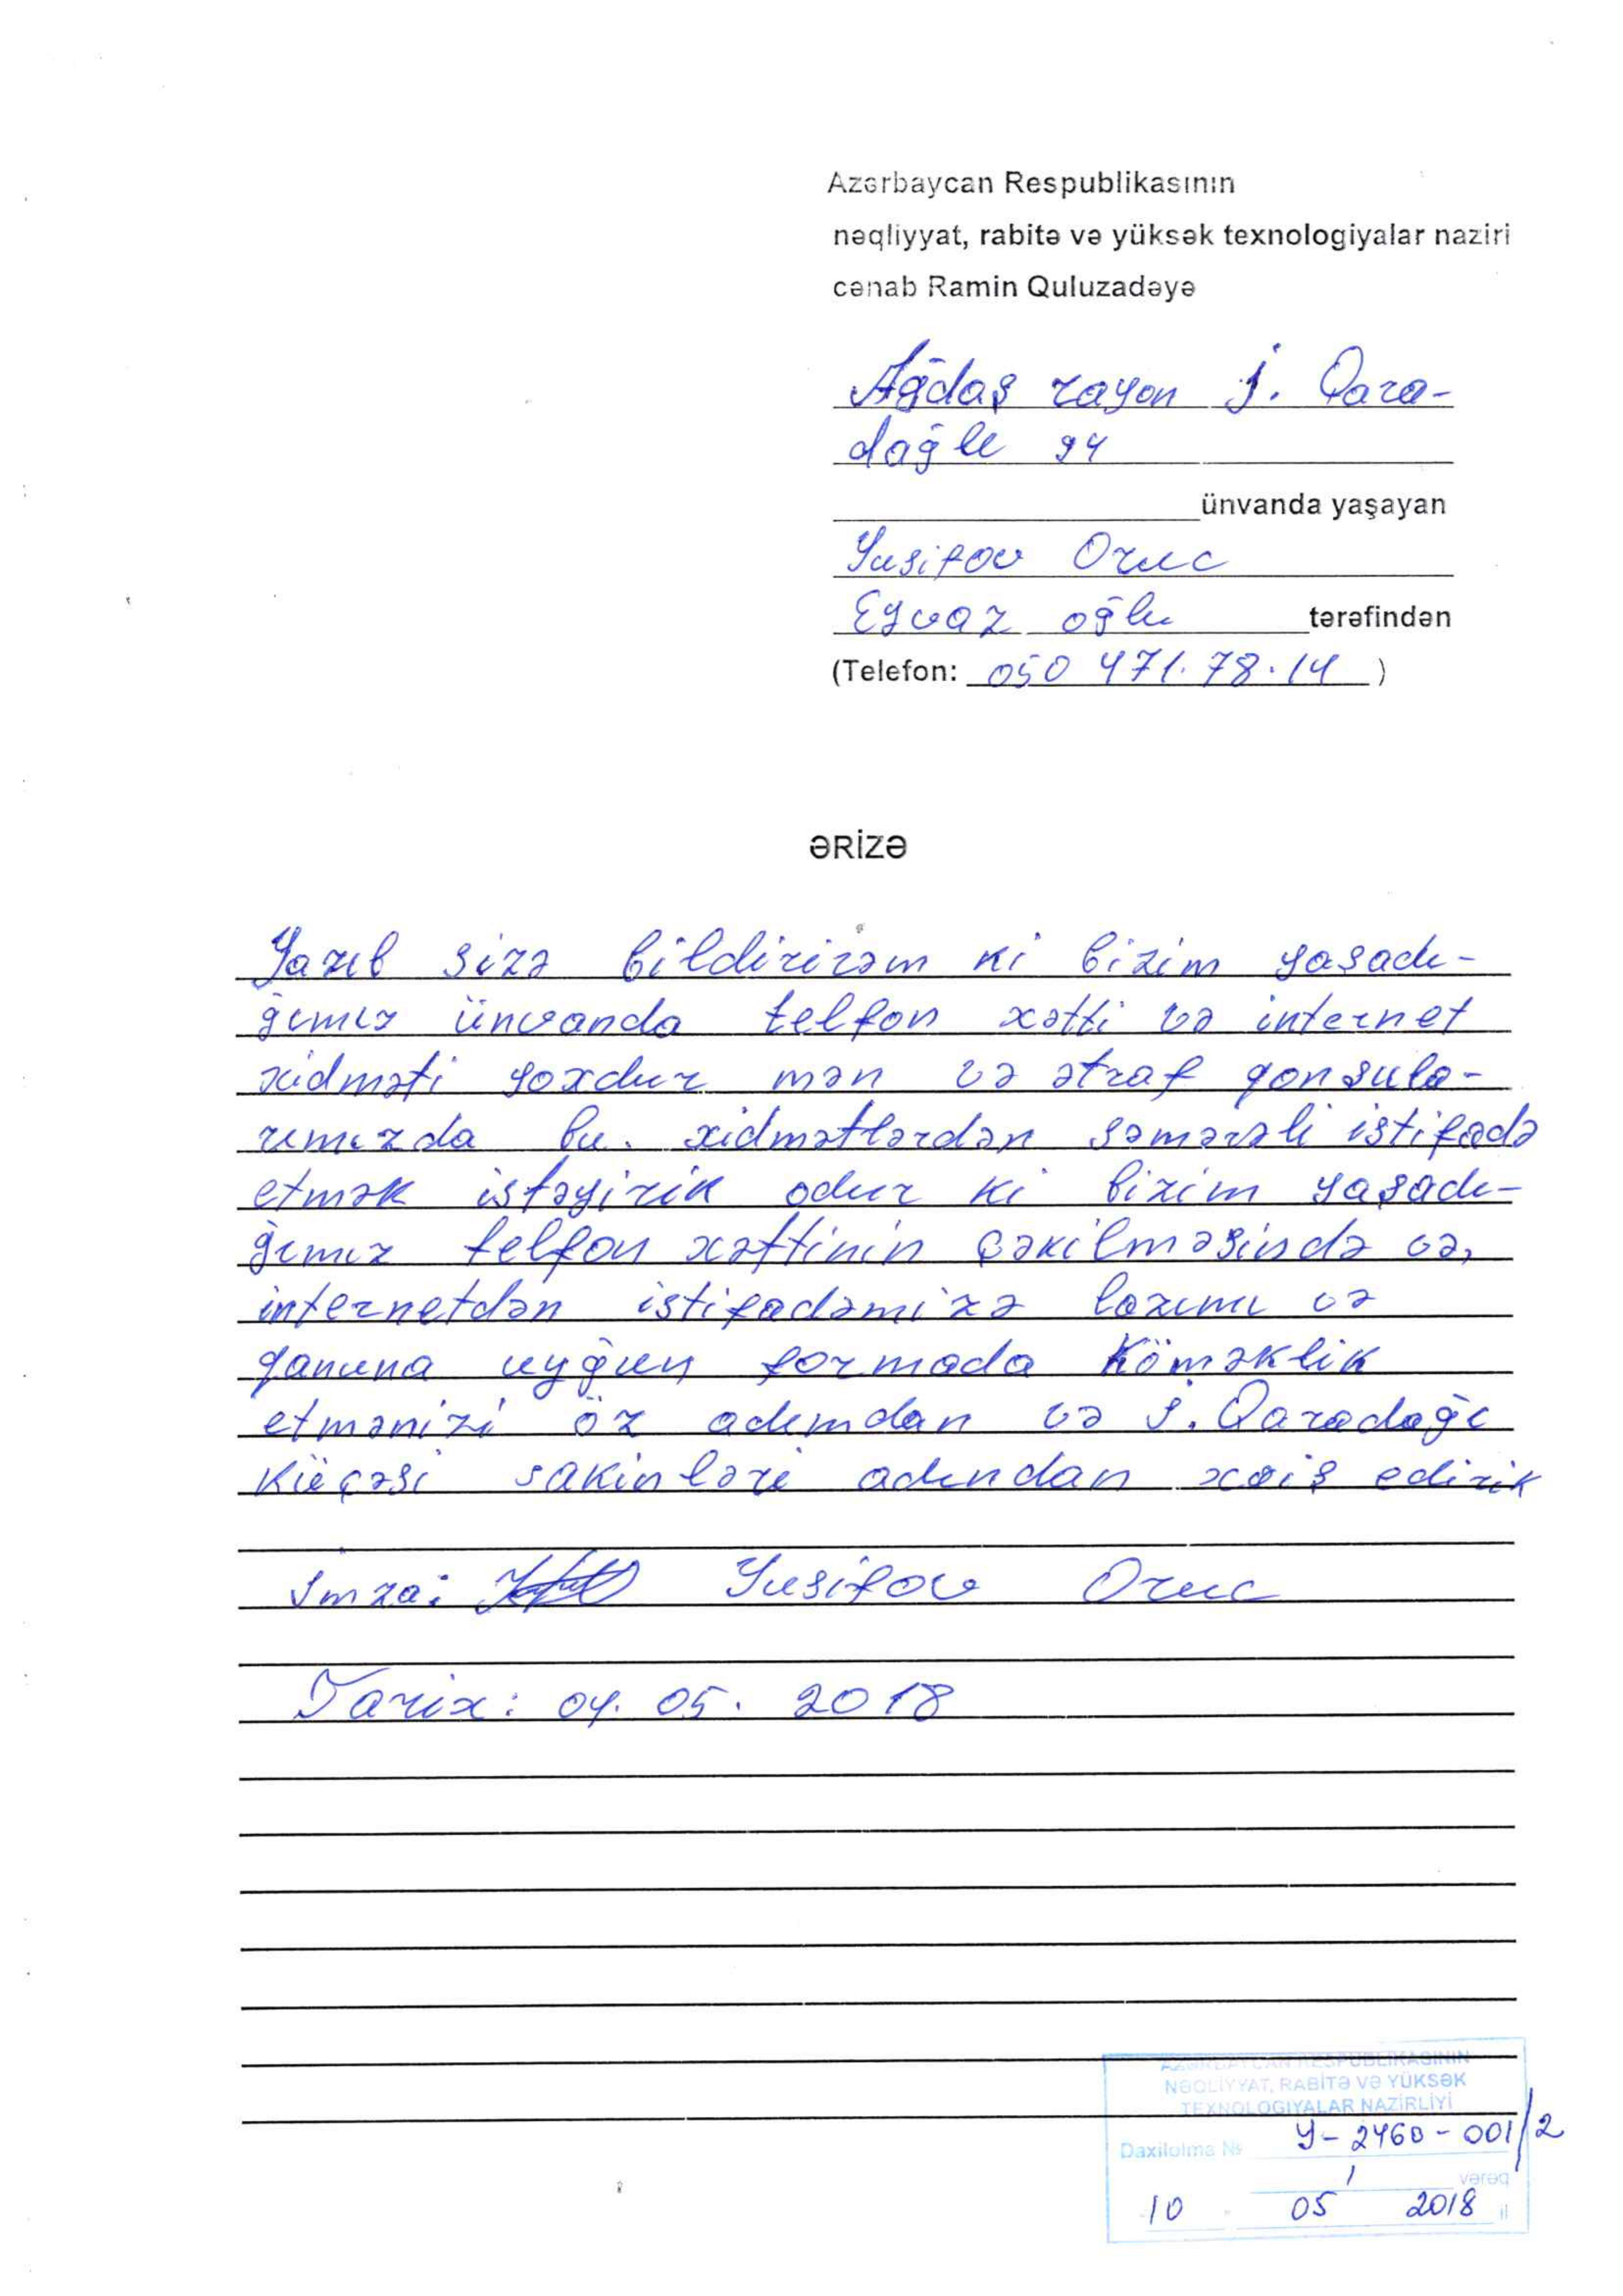 Azərbaycan Respublikasının
nəqliyyat, rabitə və yüksək texnologiyalar naziri
cənab Ramin Quluzadəyə
Ağdaş rayon İ. Qara-
dağlı 94
ünvanda yaşayan
Yusifov Oruc
Eyvaz oğlu tərəfindən
(Telefon: 050 471.78.14)
ƏRİZƏ
Yazıb sizə bildirirəm ki bizim yaşadı-
ğımız ünvanda telfon xətti və internet
xidməti yoxdur mən və ətraf qonşula-
rımızda bu. xidmətlərdən səmərəli istifadə
etmək istəyirik odur ki bizim yaşadı-
ğımız telfon xəttinin çəkilməsində və,
internetdən istifadəmizə lazımı və
qanuna uyğun formada köməklik
etmənizi öz adımdan və İ. Qaradağı
küçəsi sakinləri adından xaiş edirik
İmza: Yusifov Oruc
Tarix: 04.05.2018
AZƏRBAYCAN RESPUBLİKASININ
NƏQLİYYAT, RABİTƏ VƏ YÜKSƏK
TEXNOLOGİYALAR NAZİRLİYİ
Daxilolma № Y-2460-001/2
1 vərəq
10 05 2018 il